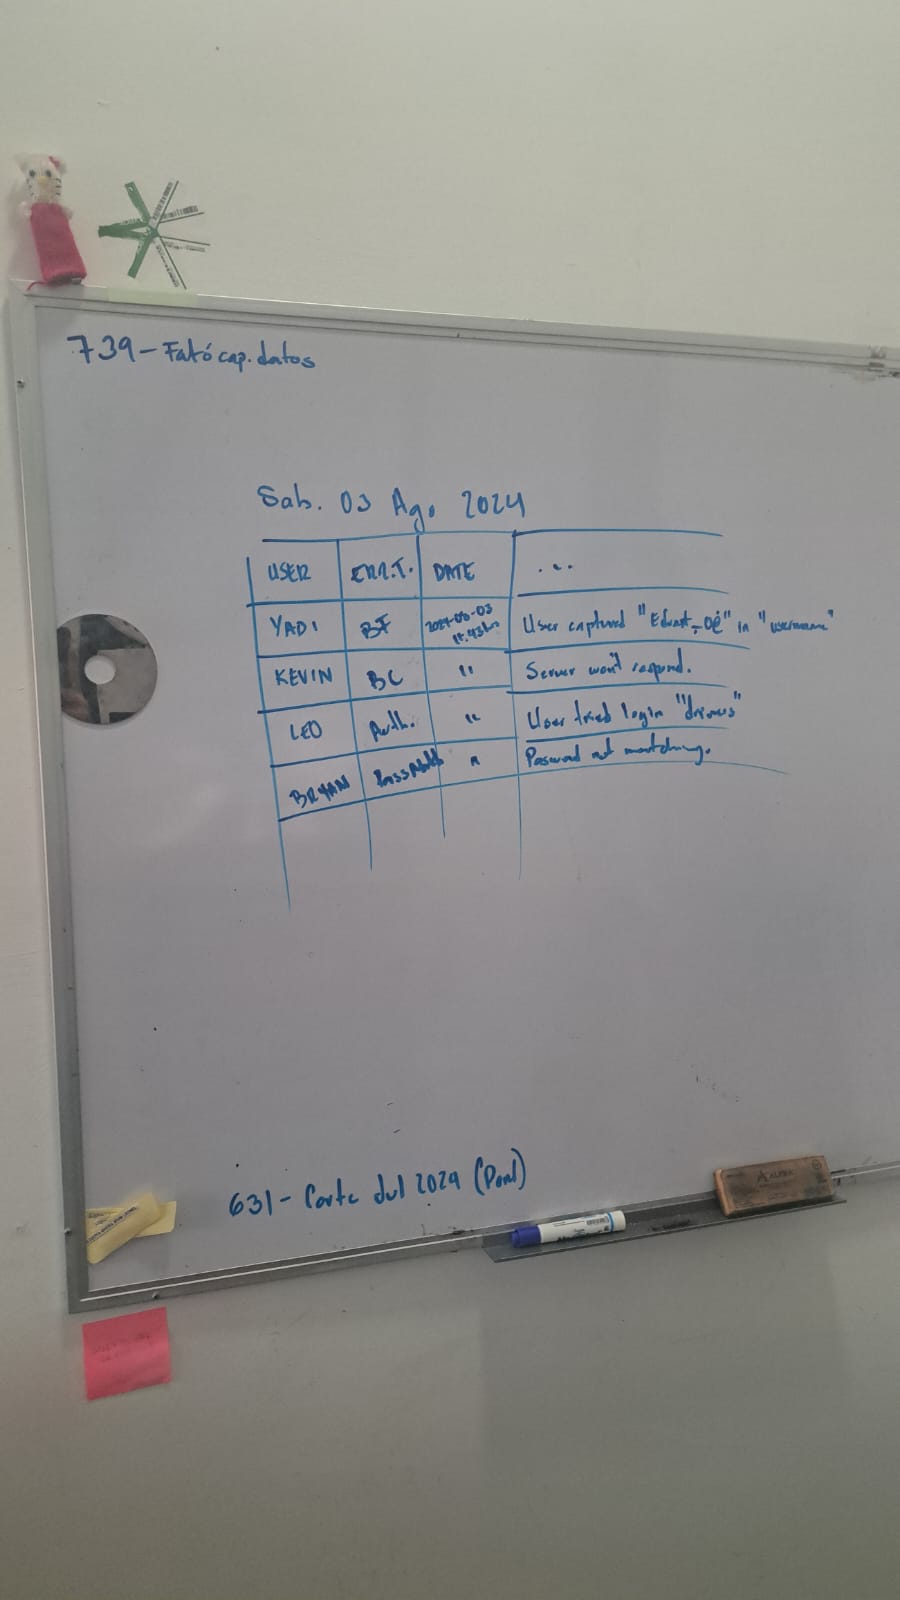 739-Faltó cap. datos
Sab. 03 Ago 2024
USER ERR.T. DATE ...
YADI BF 2024-08-03 User captured " " in "username"
KEVIN BC " Server won't respond.
LEO Auth. " User tried login
BRYAN " Password not matching.
631- Corte Jul 2024